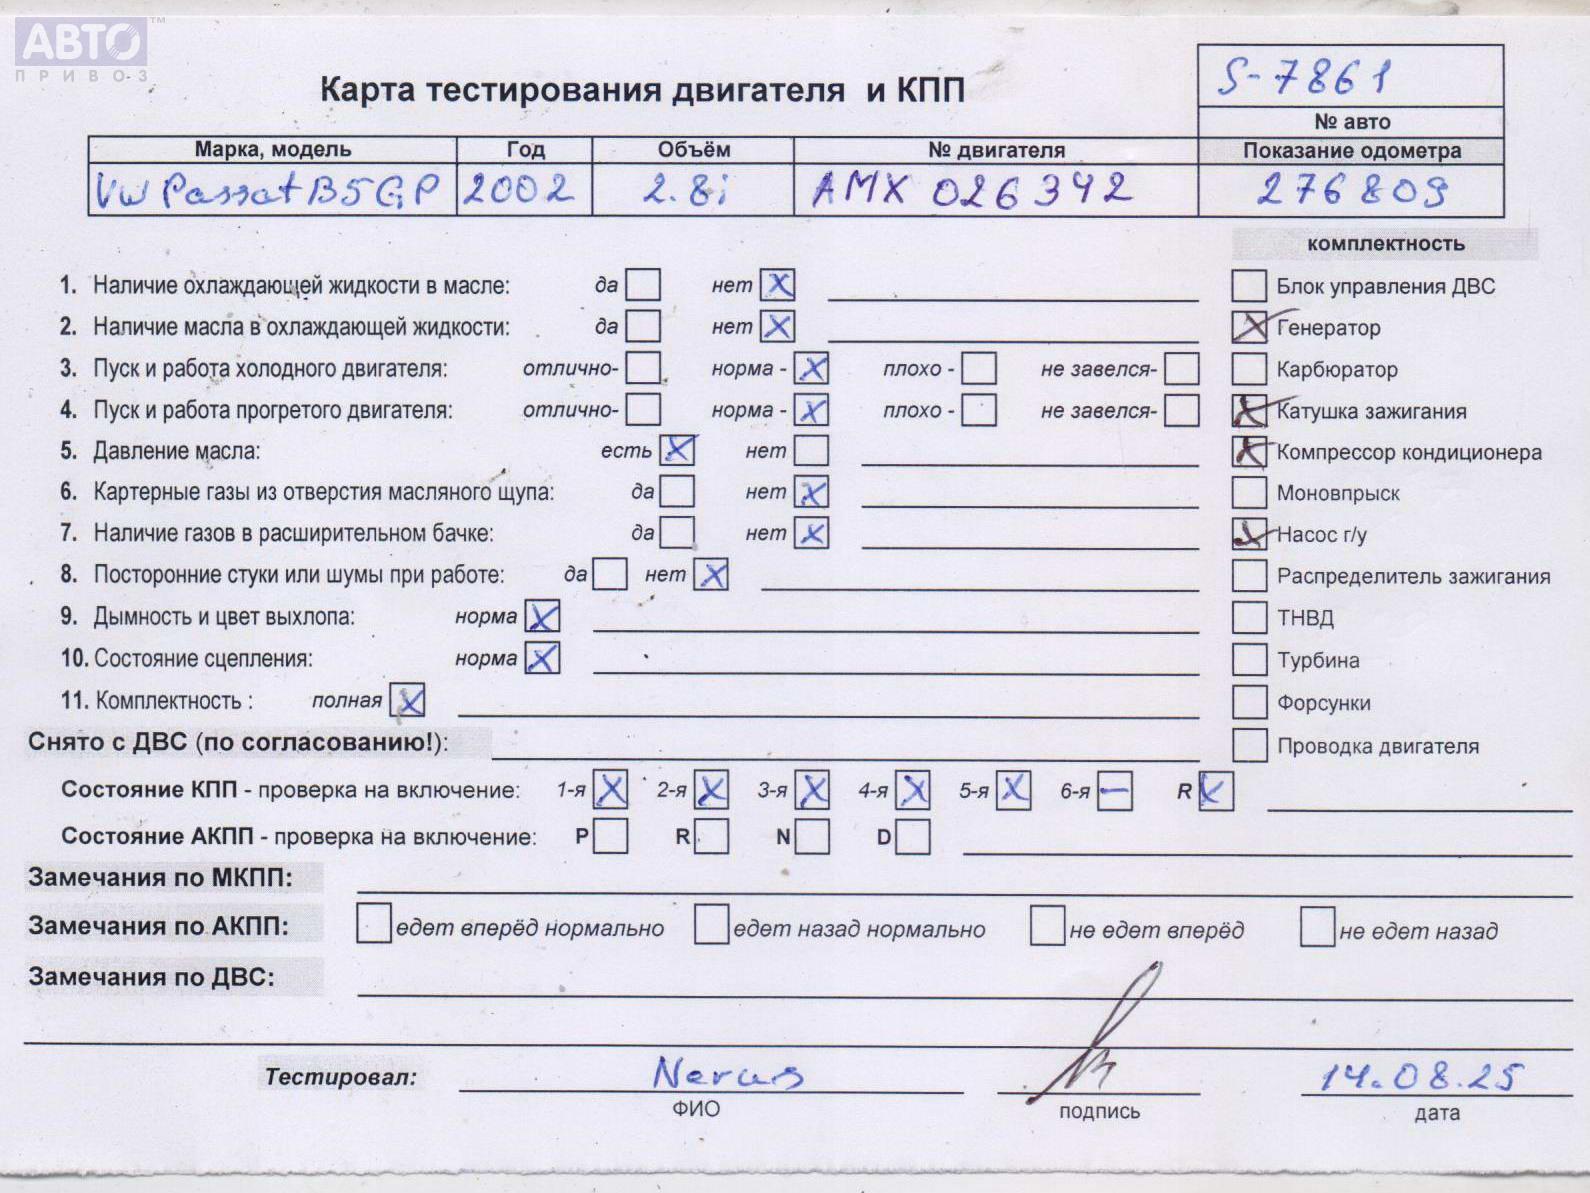 АВТО™
ПРИВОЗ
S-7861
Карта тестирования двигателя и КПП
№ авто
Марка, модель Год Объём № двигателя Показание одометра
VW Passat B5GP 2002 2.8i AMX 026342 276809
комплектность
1. Наличие охлаждающей жидкости в масле: да нет X Блок управления ДВС
2. Наличие масла в охлаждающей жидкости: да нет X X Генератор
3. Пуск и работа холодного двигателя: отлично- норма - X плохо - не завелся- Карбюратор
4. Пуск и работа прогретого двигателя: отлично- норма - X плохо - не завелся- X Катушка зажигания
5. Давление масла: есть X нет X Компрессор кондиционера
6. Картерные газы из отверстия масляного щупа: да нет X Моновпрыск
7. Наличие газов в расширительном бачке: да нет X X Насос г/у
8. Посторонние стуки или шумы при работе: да нет X Распределитель зажигания
9. Дымность и цвет выхлопа: норма X ТНВД
10. Состояние сцепления: норма X Турбина
11. Комплектность : полная X Форсунки
Снято с ДВС (по согласованию!): Проводка двигателя
Состояние КПП - проверка на включение: 1-я X 2-я X 3-я X 4-я X 5-я X 6-я — R X
Состояние АКПП - проверка на включение: P R N D
Замечания по МКПП:
Замечания по АКПП: едет вперёд нормально едет назад нормально не едет вперёд не едет назад
Замечания по ДВС:
Тестировал: 14.08.25
ФИО подпись дата